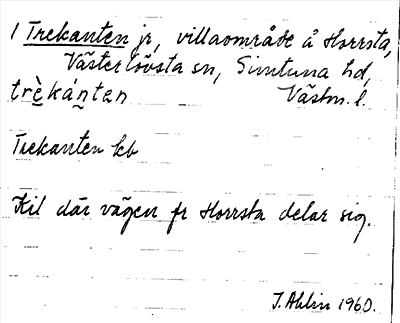 1 Trekanten jr, villaområde å Horrsta,
Västerlövsta sn, Simtuna hd,
trèkánten Västm. l.
Trekanten kb
Kil där vägen fr Horrsta delar sig.
J. Ahlin 1960.